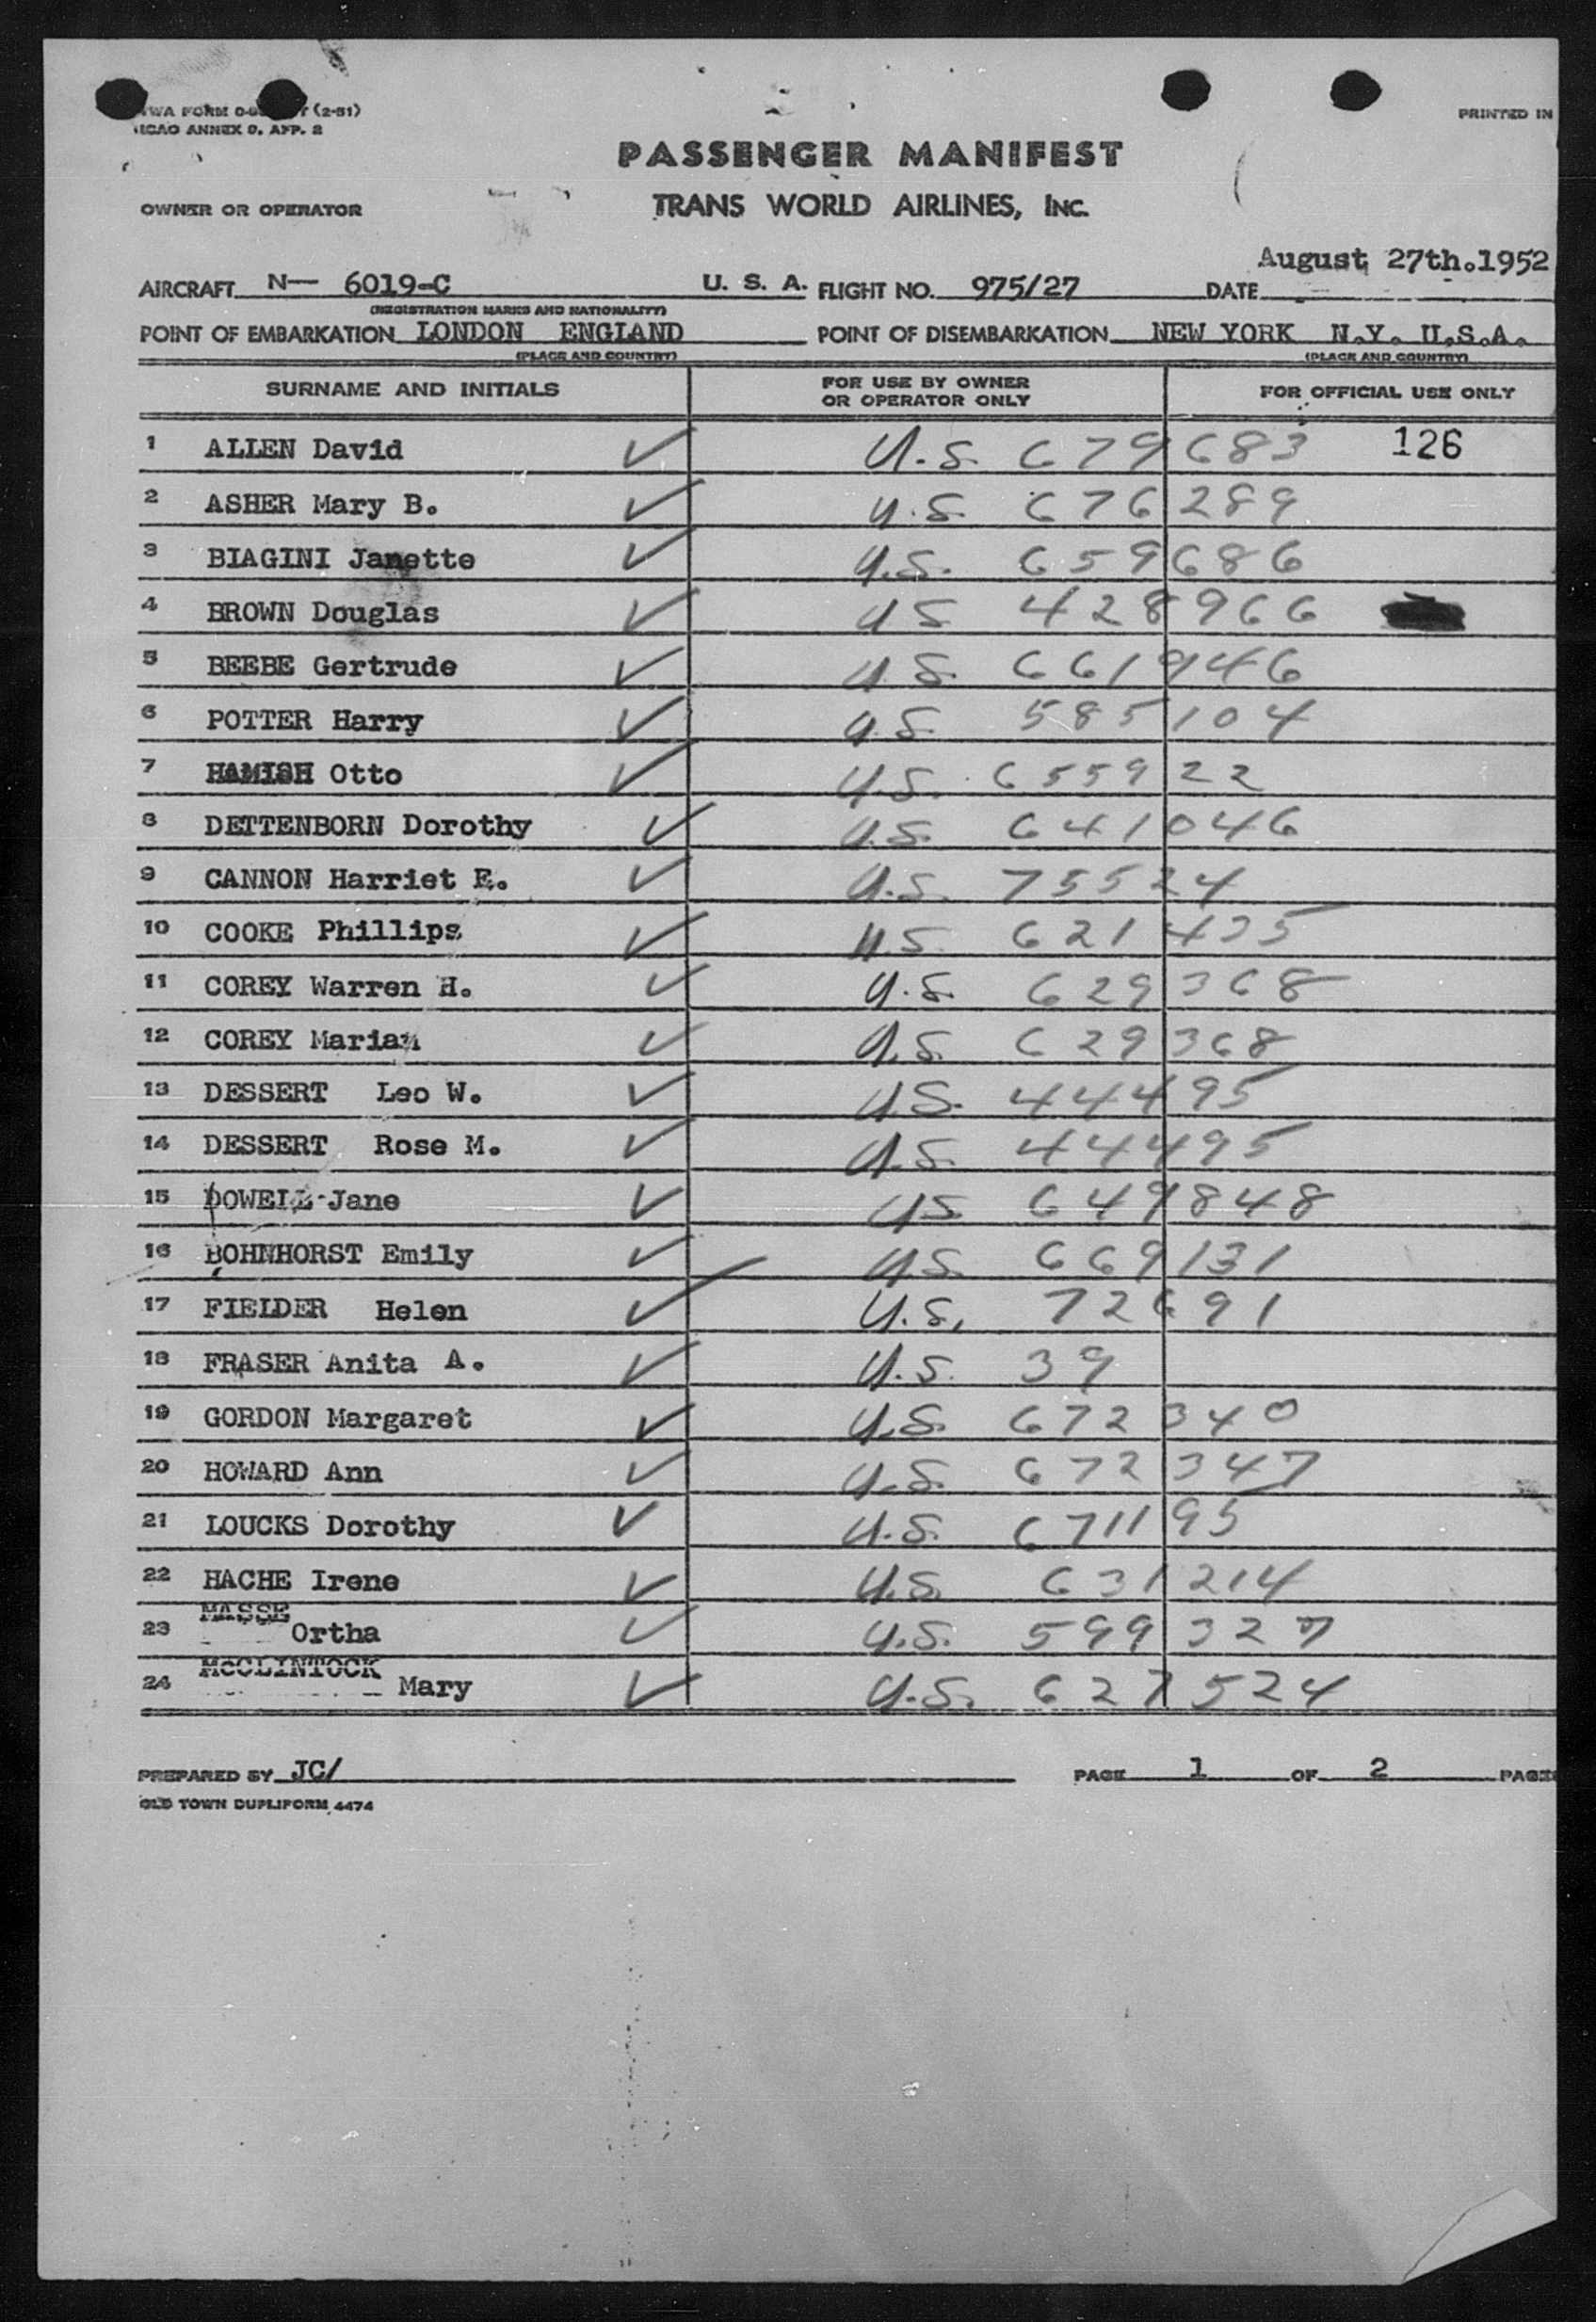 TWA FORM (2-51)
ICAO ANNEX 9, APP. 2
PRINTED IN
PASSENGER MANIFEST
OWNER OR OPERATOR TRANS WORLD AIRLINES, INC.
August 27th.1952
AIRCRAFT N— 6019-C U. S. A. FLIGHT NO. 975/27 DATE
(REGISTRATION MARKS AND NATIONALITY)
POINT OF EMBARKATION LONDON ENGLAND POINT OF DISEMBARKATION NEW YORK N.Y. U.S.A.
(PLACE AND COUNTRY) (PLACE AND COUNTRY)
SURNAME AND INITIALS FOR USE BY OWNER OR OPERATOR ONLY FOR OFFICIAL USE ONLY
1 ALLEN David ✓ U.S. 679683 126
2 ASHER Mary B. ✓ U.S. 676289
3 BIAGINI Janette ✓ U.S. 659686
4 BROWN Douglas ✓ US 428966
5 BEEBE Gertrude ✓ U.S. 661946
6 POTTER Harry ✓ U.S. 585104
7 HAMISH Otto ✓ U.S. 655922
8 DETTENBORN Dorothy ✓ U.S. 641046
9 CANNON Harriet E. ✓ U.S. 75524
10 COOKE Phillips ✓ U.S. 621435
11 COREY Warren H. ✓ U.S. 629368
12 COREY Marian ✓ U.S. 629368
13 DESSERT Leo W. ✓ U.S. 44495
14 DESSERT Rose M. ✓ U.S. 44495
15 DOWELL Jane ✓ US 649848
16 BOHNHORST Emily ✓ U.S. 669131
17 FIELDER Helen ✓ U.S. 72691
18 FRASER Anita A. ✓ U.S. 39
19 GORDON Margaret ✓ U.S. 672340
20 HOWARD Ann ✓ U.S. 672347
21 LOUCKS Dorothy ✓ U.S. 671195
22 HACHE Irene ✓ U.S. 631214
23 MASSE Ortha ✓ U.S. 599327
24 McCLINTOCK Mary ✓ U.S. 627524
PREPARED BY JC/ PAGE 1 OF 2 PAGE
OLD TOWN DUPLIFORM 4474